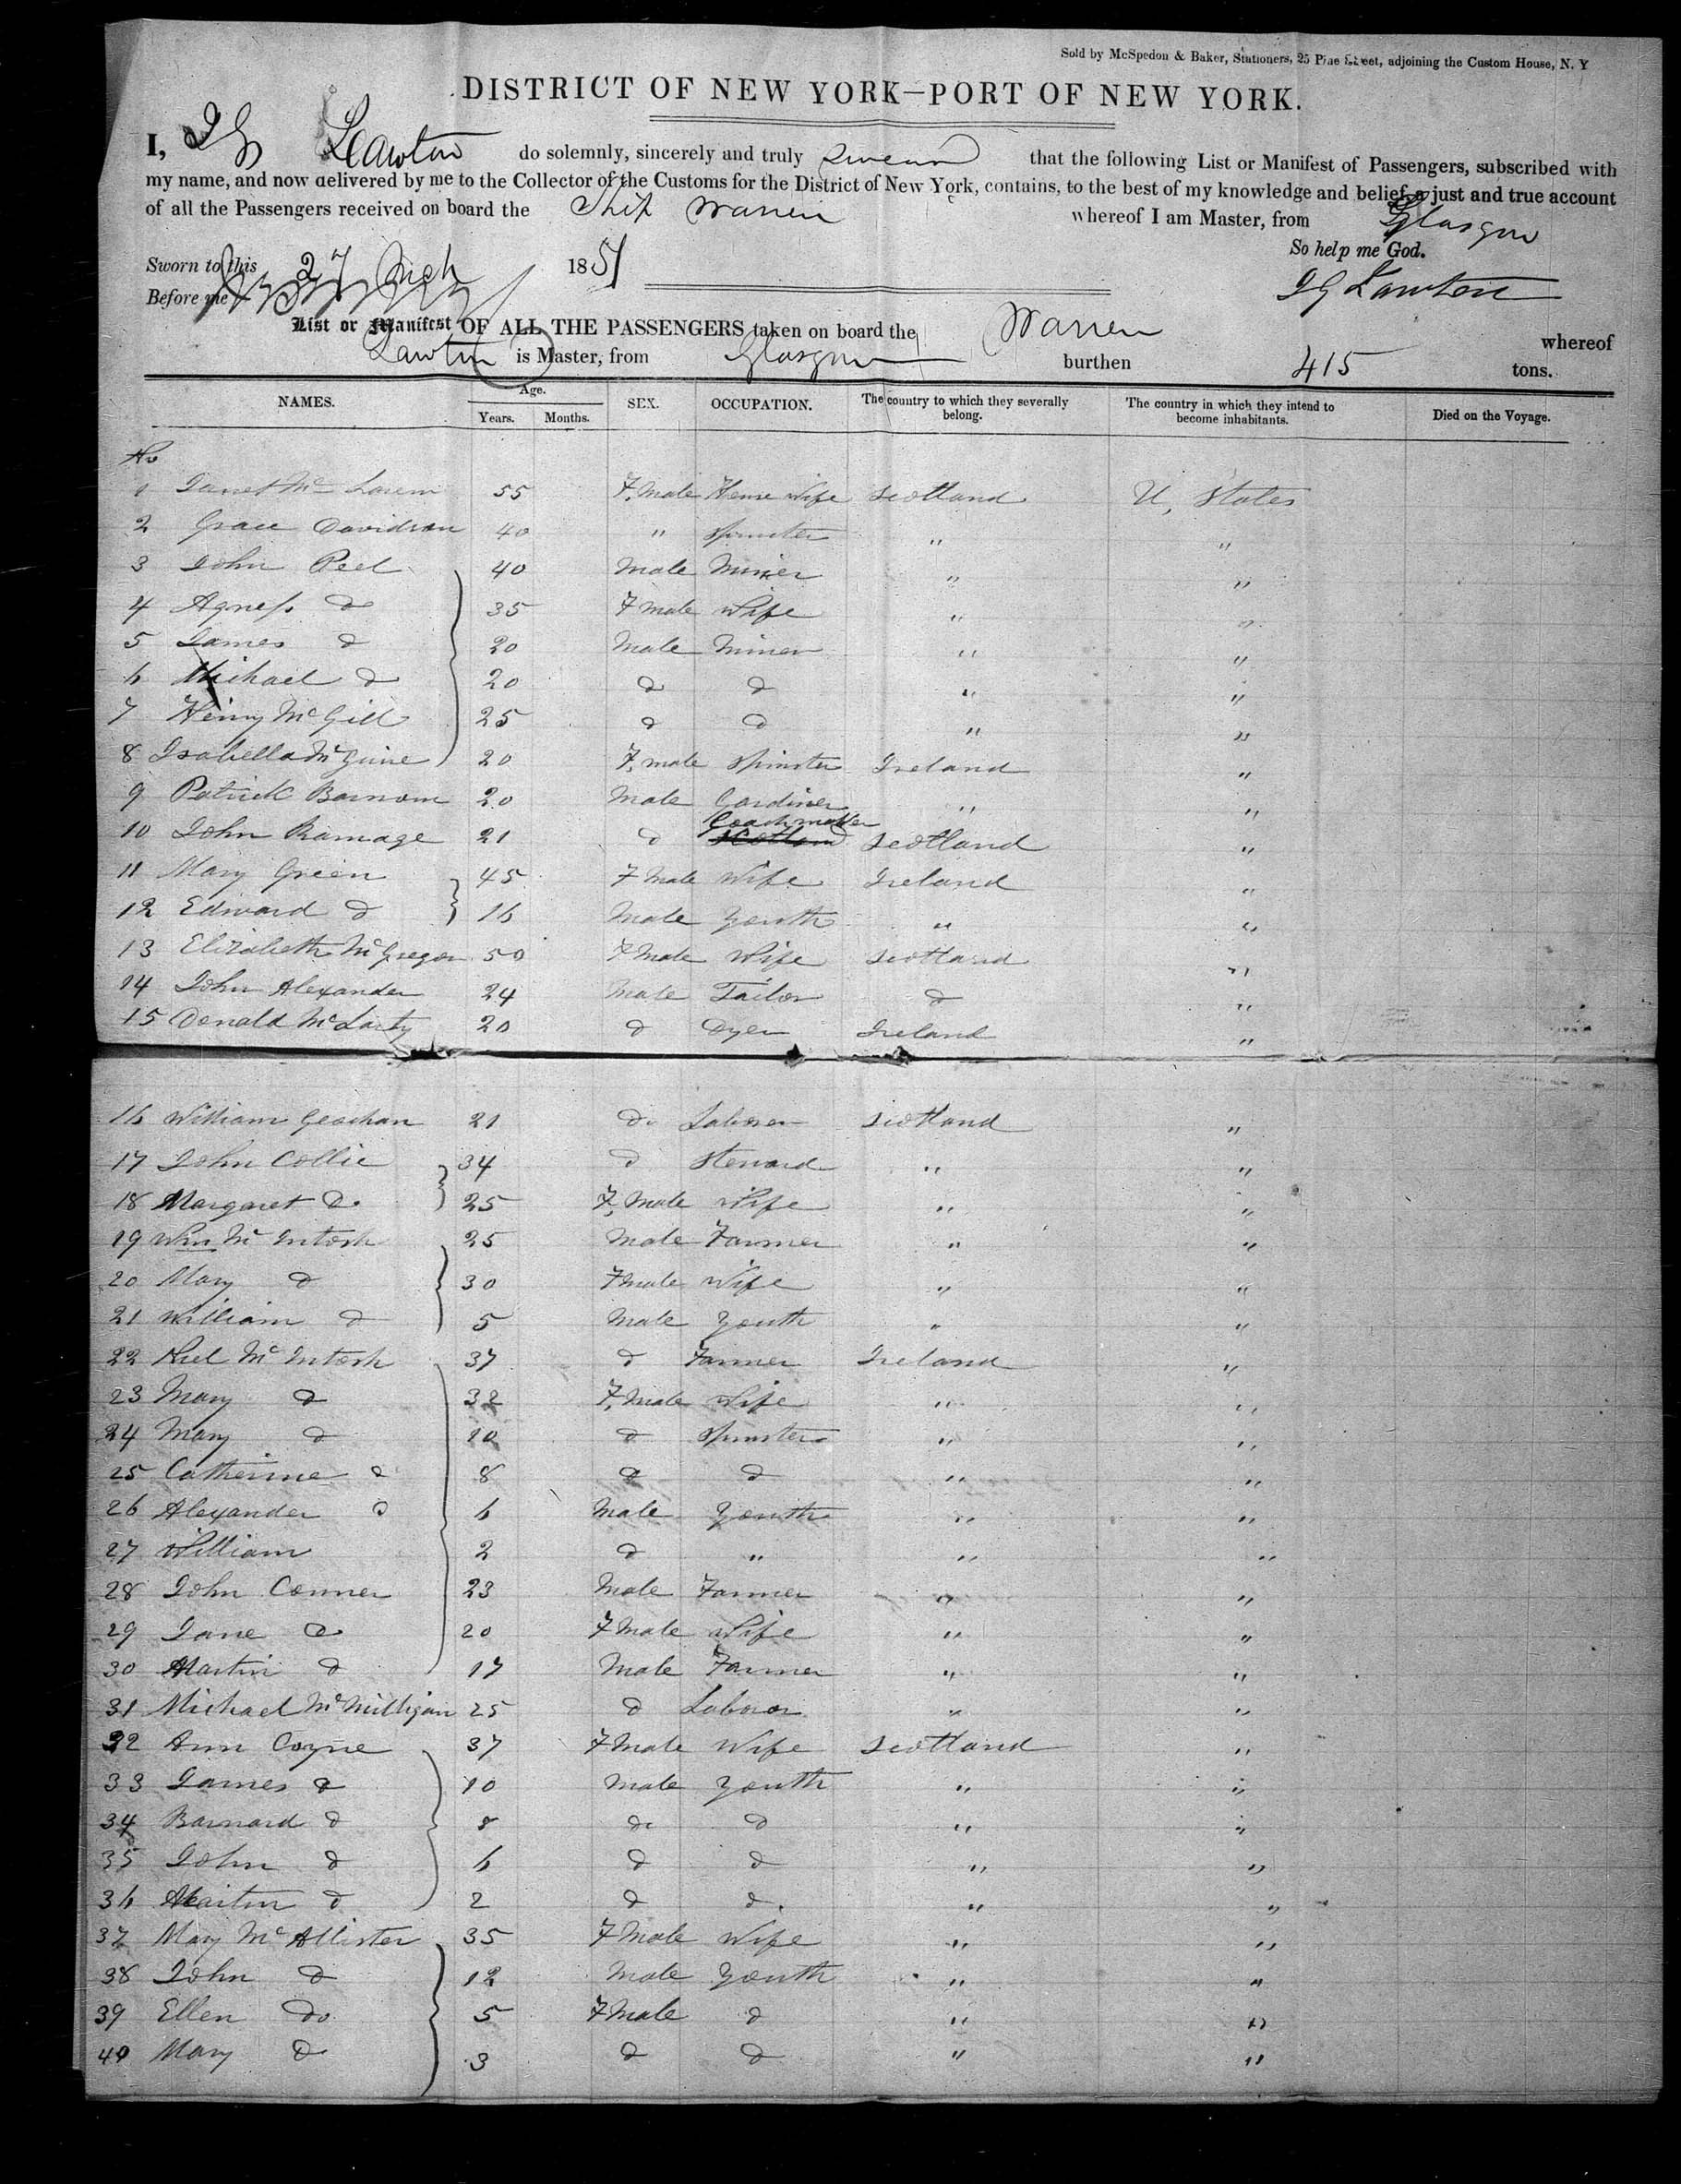 Sold by McSpedon & Baker, Stationers, 25 Pine Street, adjoining the Custom House, N. Y
DISTRICT OF NEW YORK—PORT OF NEW YORK.
I, J G Lawton do solemnly, sincerely and truly swear that the following List or Manifest of Passengers, subscribed with
my name, and now delivered by me to the Collector of the Customs for the District of New York, contains, to the best of my knowledge and belief, a just and true account
of all the Passengers received on board the Ship Warren whereof I am Master, from Glasgow
So help me God.
Sworn to this 27 Mch 1851
J G Lawton
Before me
List or Manifest OF ALL THE PASSENGERS taken on board the Warren whereof
Lawton is Master, from Glasgow burthen 415 tons.
NAMES. Age. Years. Months. SEX. OCCUPATION. The country to which they severally belong. The country in which they intend to become inhabitants. Died on the Voyage.
No
1 Janet Mc Laren 55 F. Male House Wife Scotland U. States
2 Grace Davidson 40 " Spinster " "
3 John Peel 40 Male Miner " "
4 Agness d 35 F male Wife " "
5 James d 20 Male Miner " "
6 Michael d 20 d d " "
7 Henry McGill 25 d d " "
8 Isabella McGuire 20 F. male Spinster Ireland "
9 Patrick 20 Male Gardiner " "
10 John Ramage 21 d Coachmaker Scotland Scotland "
11 Mary Green 45 F Male Wife Ireland "
12 Edward d 16 Male Youth " "
13 Elizabeth McGregor 50 F Male Wife Scotland "
14 John Alexander 24 Male Tailor d "
15 Donald McLarty 20 d Dyer Ireland "
16 William 21 do Laborer Scotland "
17 John Collie 34 d Steward " "
18 Margaret do 25 F. Male Wife " "
19 Wm Mc Intosh 25 Male Farmer " "
20 Mary d 30 F male Wife " "
21 William d 5 Male Youth " "
22 Niel Mc Intosh 37 d Farmer Ireland "
23 Mary d 32 F. Male Wife " "
24 Mary d 10 d Spinster " "
25 Catherine d 8 d d " "
26 Alexander d 6 Male Youth " "
27 William 2 d " " "
28 John Conner 23 Male Farmer " "
29 Jane do 20 F Male Wife " "
30 Martin d 17 Male Farmer " "
31 Michael McMilligan 25 d Laborer " "
32 Ann Coyne 37 F Male Wife Scotland "
33 James d 10 Male Youth " "
34 Barnard d 8 do d " "
35 John d 6 d d " "
36 Martin d 2 d d. " "
37 Mary McAllister 35 F Male Wife " "
38 John d 12 Male Youth " "
39 Ellen Do 5 F Male d " "
40 Mary d 3 d d " "